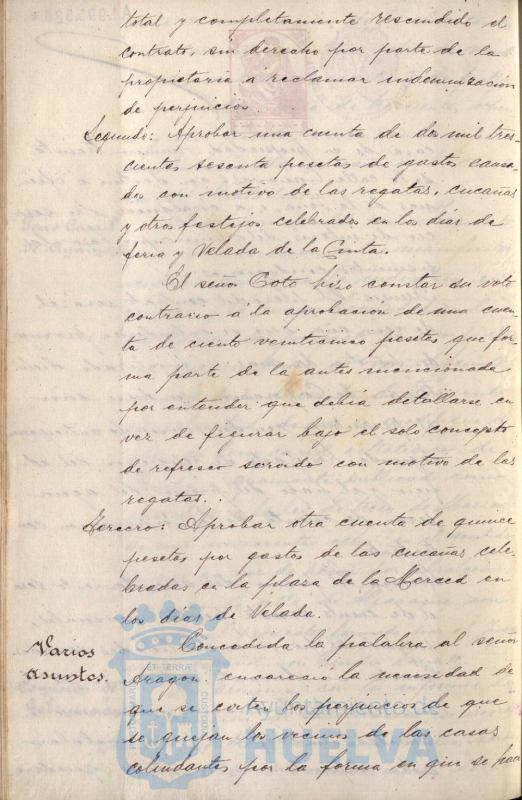 total y completamente rescindido el
contrato, sin derecho por parte de la
propietaria a reclamar indemnización
de perjuicios.
Segundo: Aprobar una cuenta de dos mil tres-
cientos sesenta pesetas de gastos causa-
dos con motivo de las regatas, cucañas
y otros festejos celebrados en los días de
feria y Velada de la Cinta.
El señor Coto hizo constar su voto
contrario á la aprobación de una cuen-
ta de ciento veinticinco pesetas que for-
ma parte de la antes mencionada
por entender que debía detallarse en
vez de figurar bajo el solo concepto
de refresco servido con motivo de las
regatas.
Tercero: Aprobar otra cuenta de quince
pesetas por gastos de las cucañas cele-
bradas en la plaza de la Merced en
los días de Velada.
Varios
asuntos.
Concedida la palabra al señor
Aragón encareció la necesidad de
que se corten los perjuicios de que
se quejan los vecinos de las casas
colindantes por la forma en que se hace
ET TERRÆ
CUSTODIA
AYUNTAMIENTO DE
HUELVA